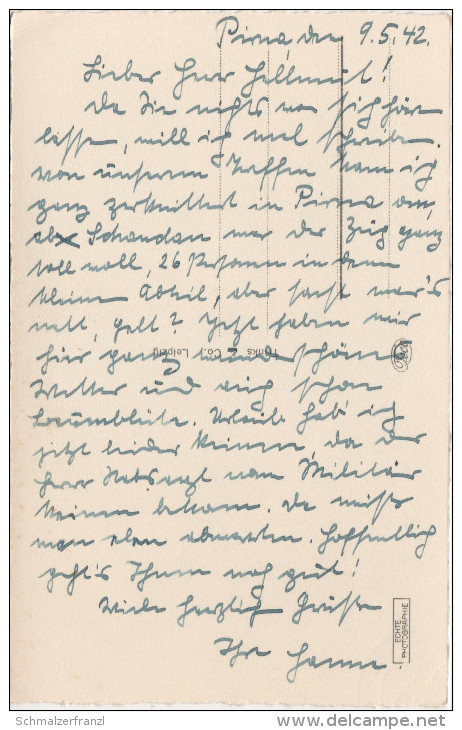 Pirna, den 9.5.42.
Lieber Herr Hellmut!
Da Sie nichts von sich hören
lassen, will ich mal schreiben.
Von unserem Treffen kam ich
ganz zerknittert in Pirna an,
ab Schandau war der Zug ganz
toll voll, 26 Personen in dem
kleinen Abteil, aber sonst war's
nett, gelt? Jetzt haben wir
hier ganz schönes
Wetter und auch schon
Baumblüte. Urlaub hab' ich
jetzt leider keinen, da der
Herr vom Militär
keinen bekam. Da muss
man eben abwarten. Hoffentlich
geht's Ihnen noch gut!
Viele herzliche Grüße
Ihre Hanna.
Trinks & Co., Leipzig
ECHTE
PHOTOGRAPHIE
Schmalzerfranzl
www.delcampe.net